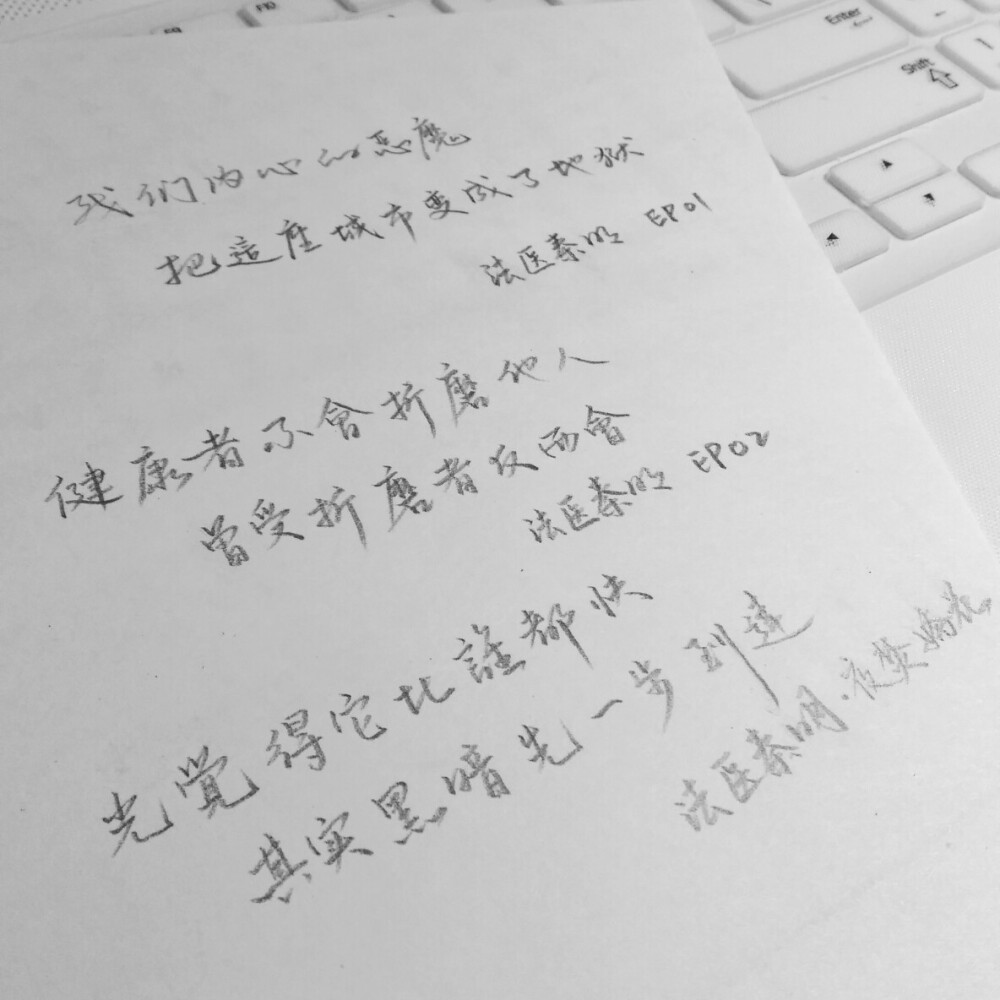 F9
F10
Enter
Shift
我们内心的恶魔
把這座城市变成了地狱
法医秦明 EP01
健康者不會折磨他人
曾受折磨者反而會
法医秦明 EP02
光覺得它比誰都快
其实黑暗先一步到達
法医秦明·夜焚娇花